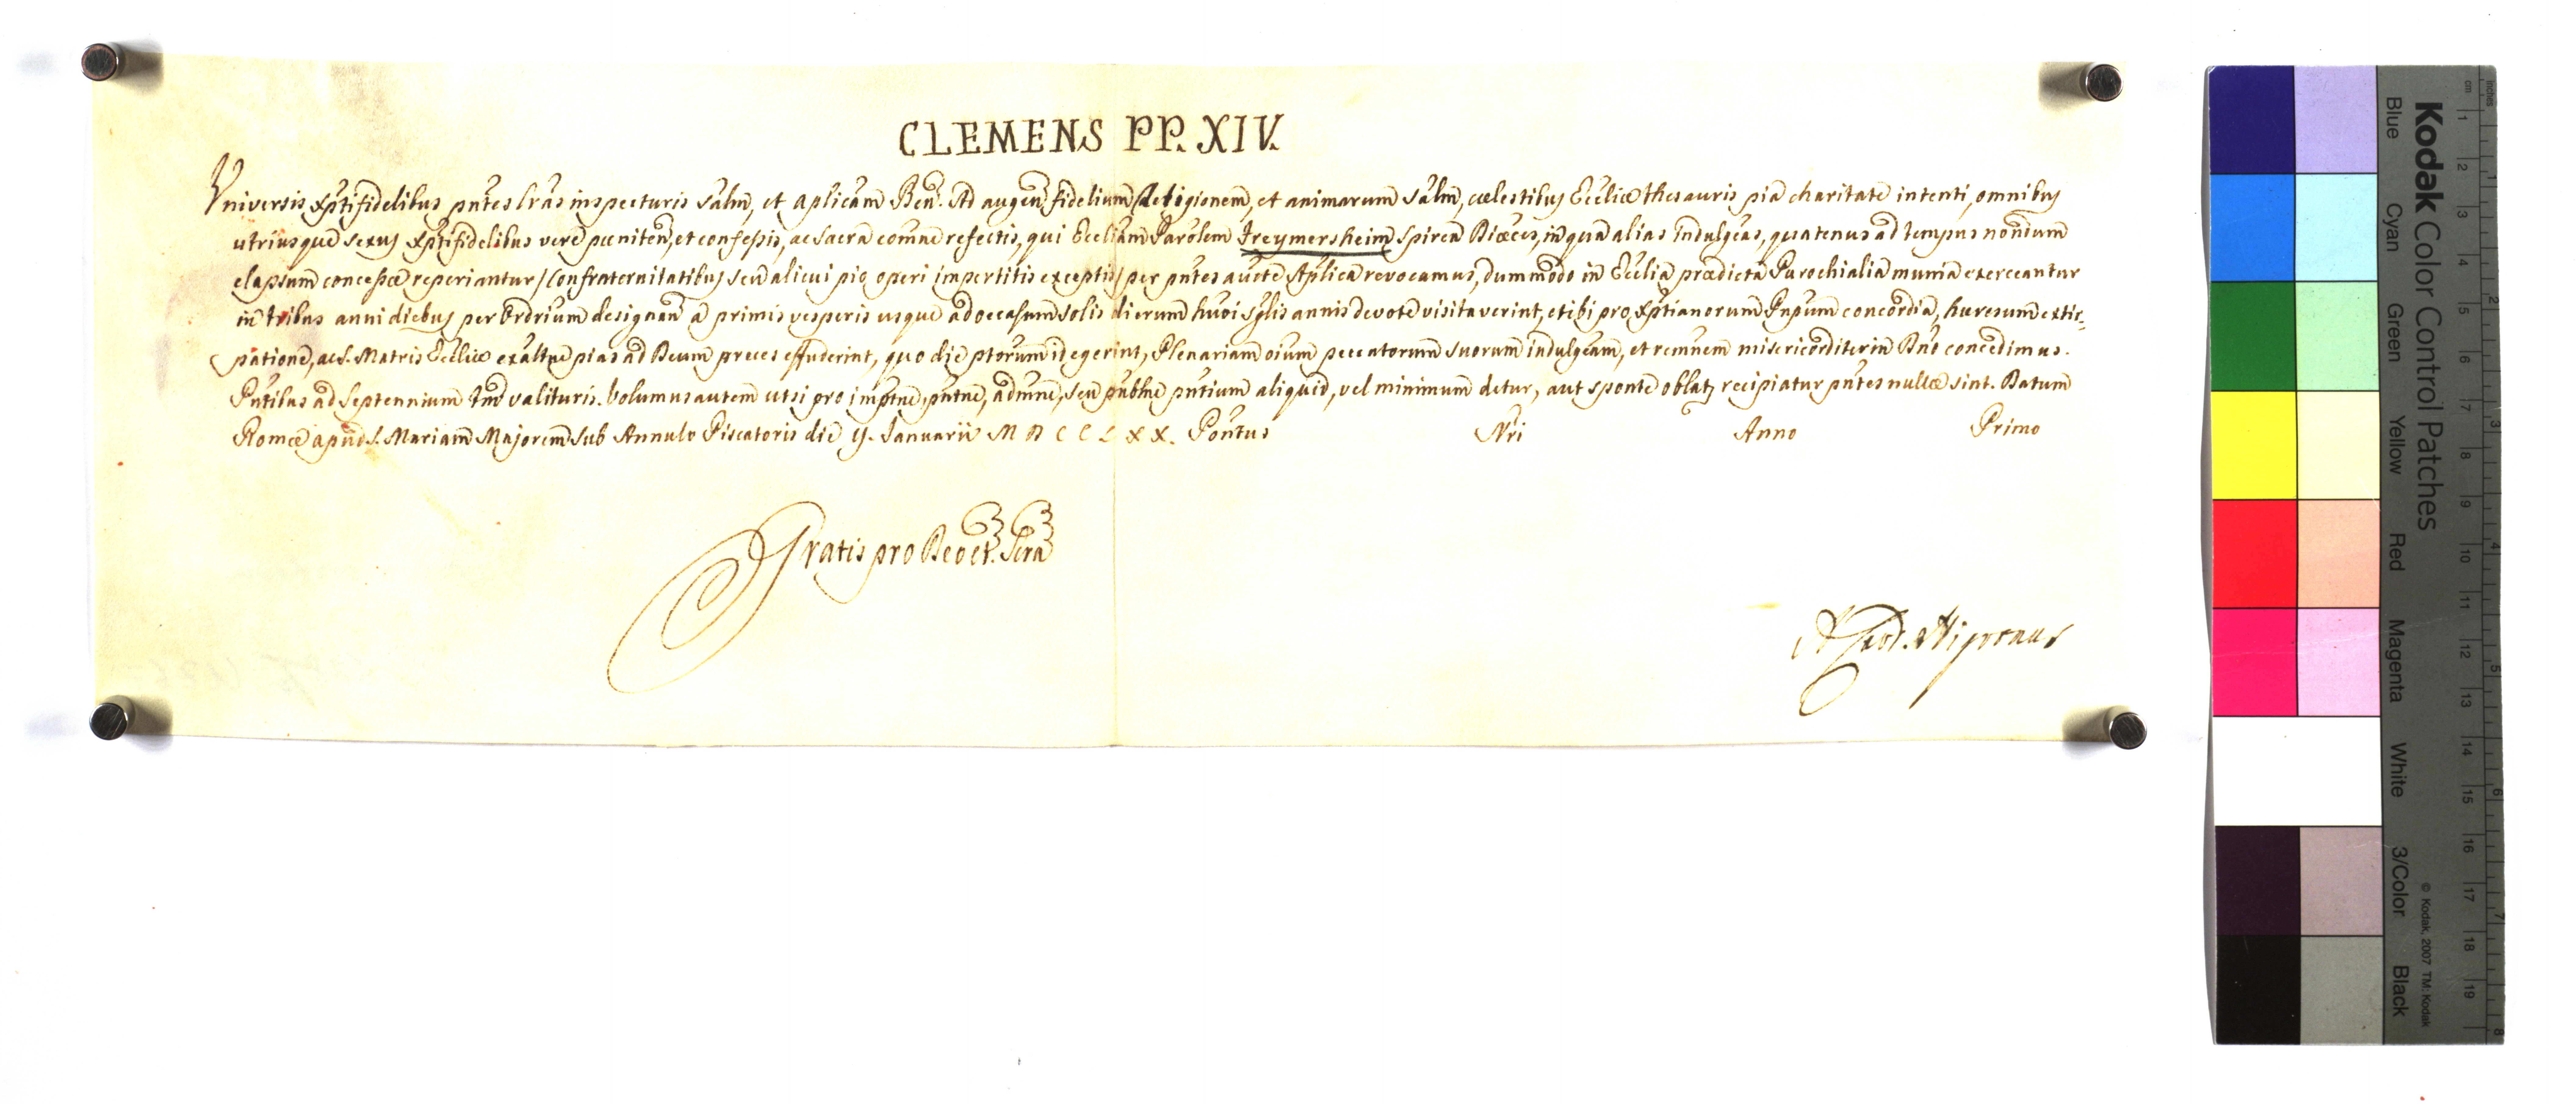 CLEMENS PP. XIV.
Universis Xptifidelibus pntes lras inspecturis salm, et aplicam Ben. Ad augen fidelium Religionem, et animarum salm, cœlestibus Eccliæ thesauris pia charitate intenti, omnibus
utriusque sexus Xptifidelibus vere pœniten, et confessis, ac sacra comne refectis, qui Eccliam Parolem Freymersheim Spiren Diœces, in qua alias Indulgeas, quatenus ad tempus nondum
elapsum concessæ reperiantur / Confraternitatibus seu alicui pio operi impertitis exceptis / per pntes aucte Aplica revocamus, dummodo in Ecclia prædicta Parochialia munia exerceantur
in tribus anni diebus per Ordrium designan a primis vesperis usque ad occasum solis dierum huoi sglis annis devote visitaverint, et ibi pro Xptianorum Pnpum concordia, hæresum extir-
patione, ac S. Matris Ecclliæ exaltne pias ad Deum preces effuderint, quo die ptorum id egerint, Plenariam oium peccatorum suorum indulgeam, et remnem misericorditer in Dno concedimus.
Pntibus ad Septennium tm valituris. Volumus autem ut si pro imptne, pntne, admne, seu publne pntium aliquid, vel minimum detur, aut sponte oblat, recipiatur pntes nullæ sint. Datum
Romæ apud S. Mariam Majorem sub Annulo Piscatoris die 9. Ianuarii M D C C L X X. Pontus Nri Anno Primo
Gratis pro Deo et Scra
A. Card. Nigronus
Kodak Color Control Patches
Blue Cyan Green Yellow Red Magenta White 3/Color Black
© Kodak, 2007 TM: Kodak
cm 1 2 3 4 5 6 7 8 9 10 11 12 13 14 15 16 17 18 19
inches 1 2 3 4 5 6 7 8